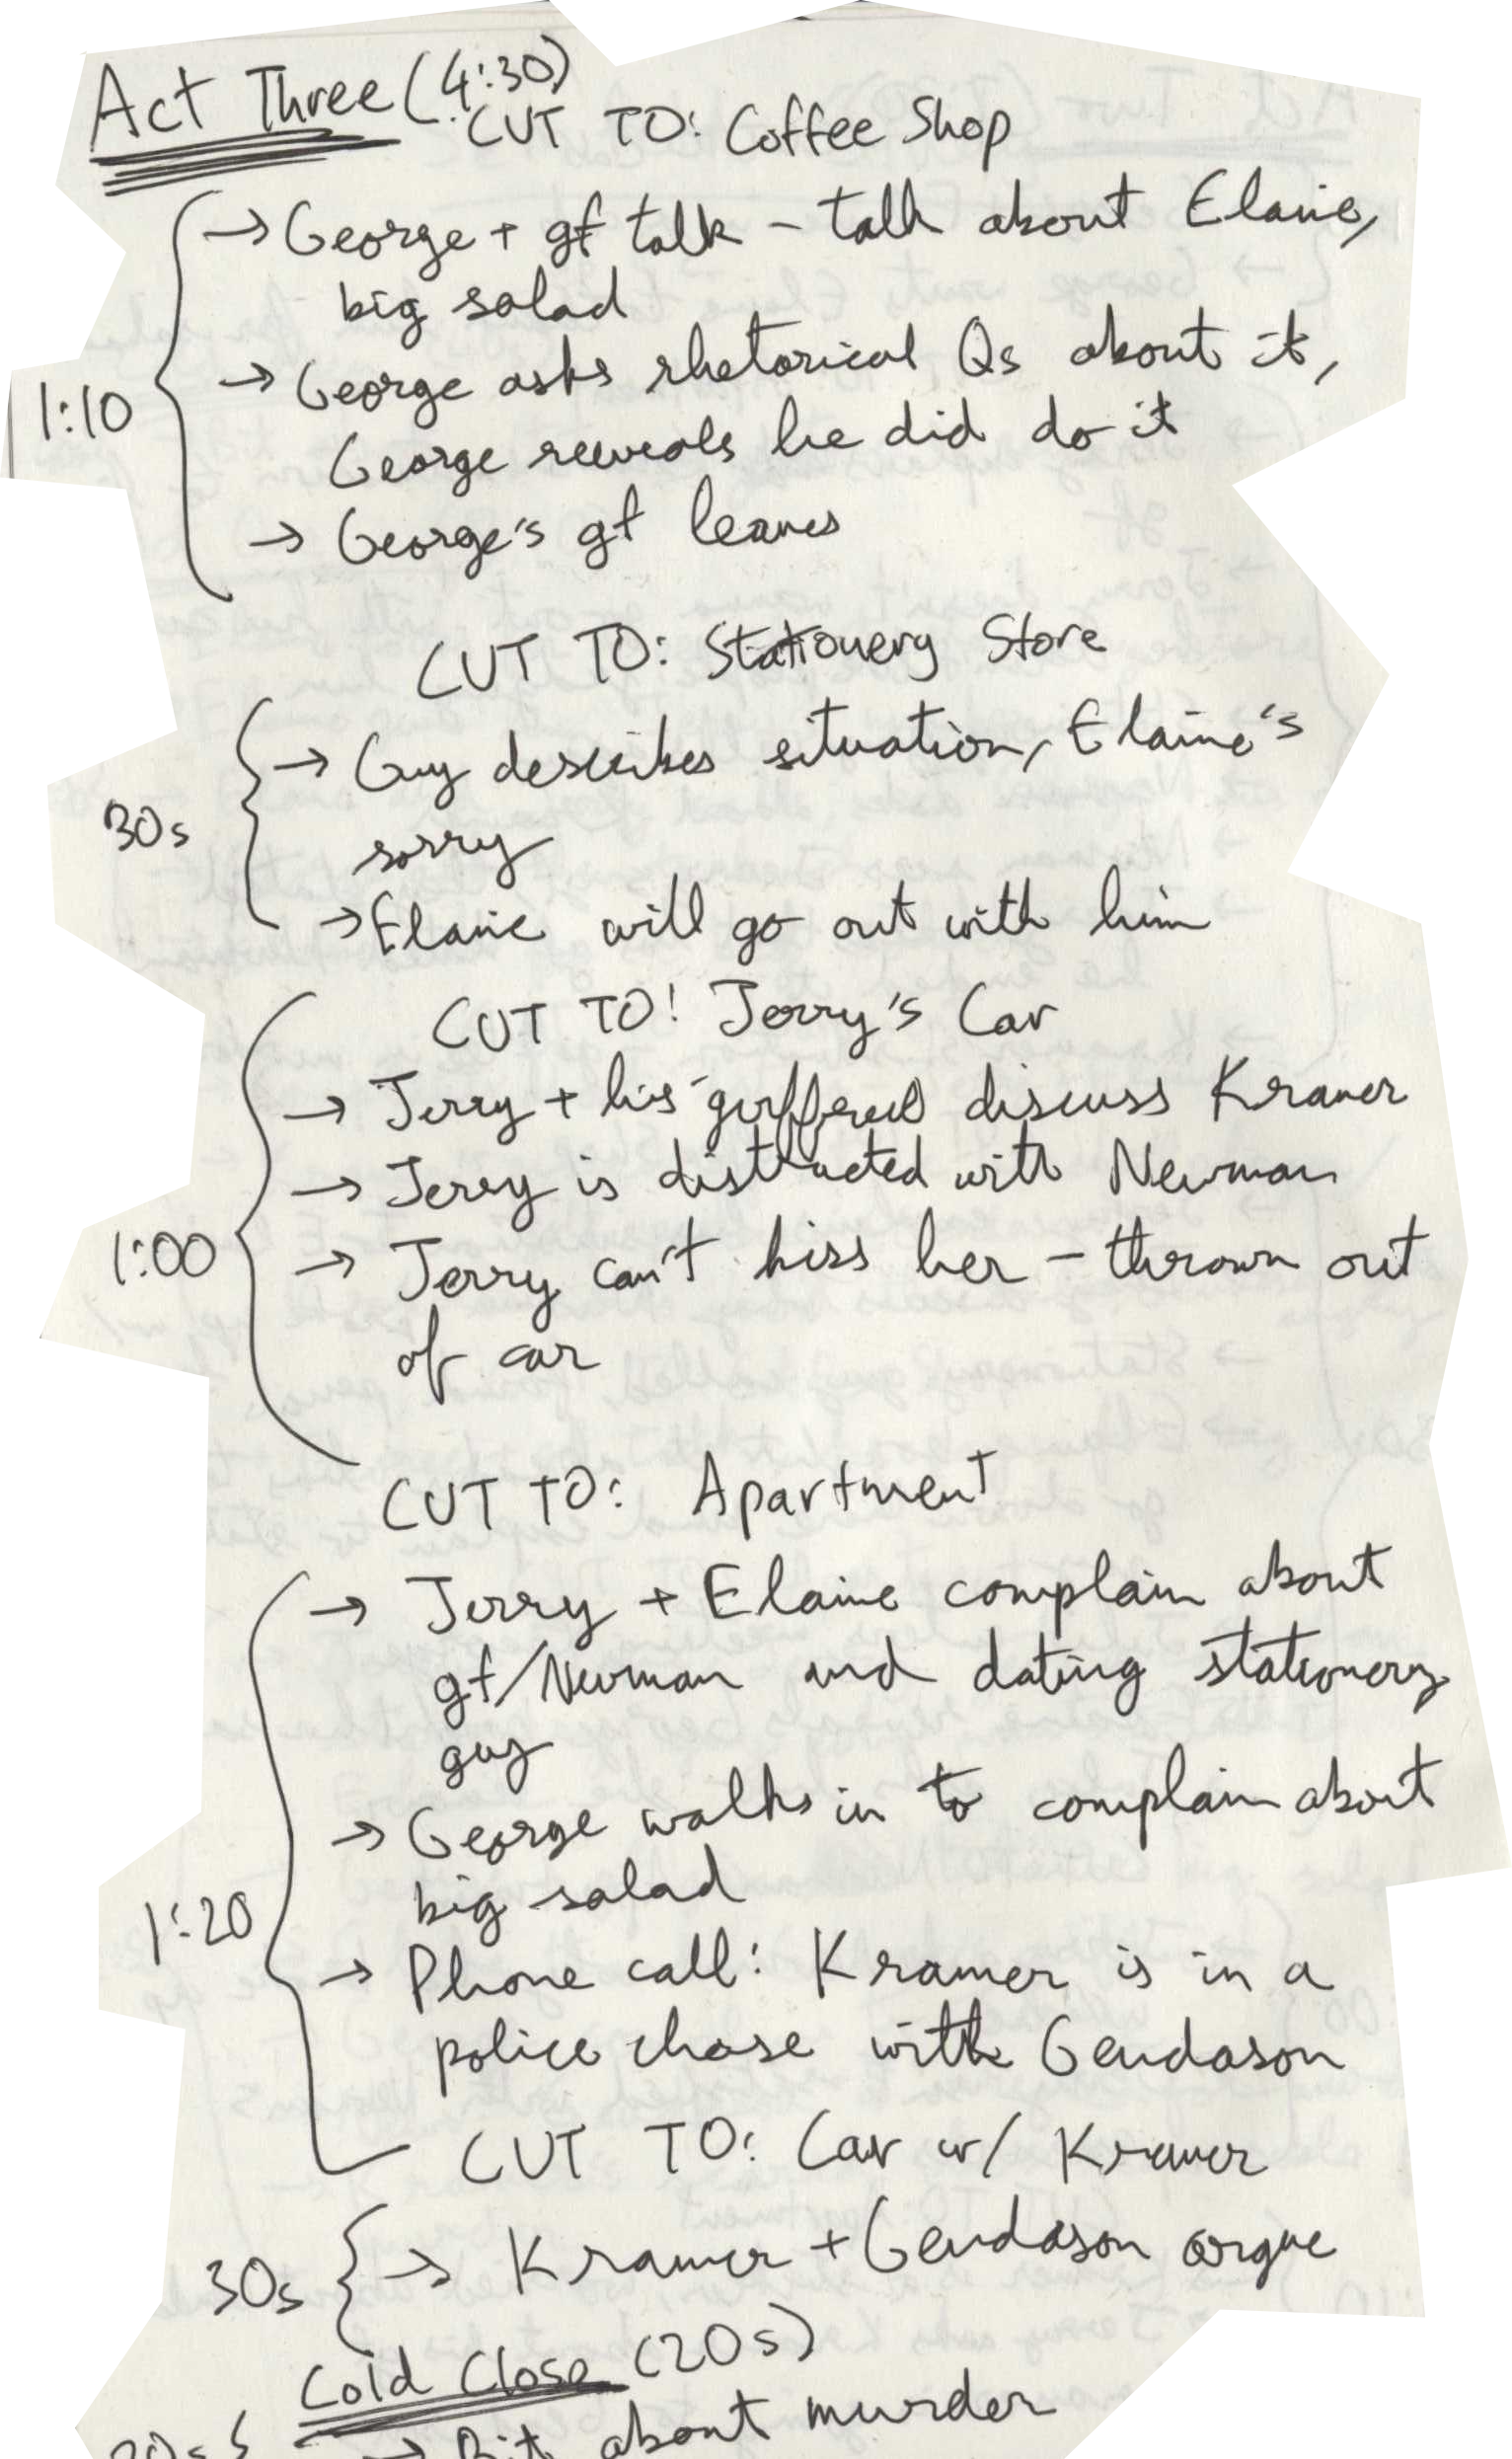 Act Three (4:30)
CUT TO: Coffee Shop
→ George + gf talk - talk about Elaine,
big salad
1:10
→ George asks rhetorical Qs about it,
George reveals he did do it
→ George's gf leaves
CUT TO: Stationery Store
→ Guy describes situation, Elaine's
30s
sorry
→ Elaine will go out with him
CUT TO: Jerry's Car
→ Jerry + his girlfriend discuss Kramer
→ Jerry is distracted with Newman
1:00
→ Jerry can't kiss her - thrown out
of car
CUT TO: Apartment
→ Jerry + Elaine complain about
gf/Newman and dating stationery
guy
→ George walks in to complain about
big salad
1:20
→ Phone call: Kramer is in a
police chase with Gendason
CUT TO: Car w/ Kramer
30s
→ Kramer + Gendason argue
Cold Close (20s)
20s
→ Bit about murder